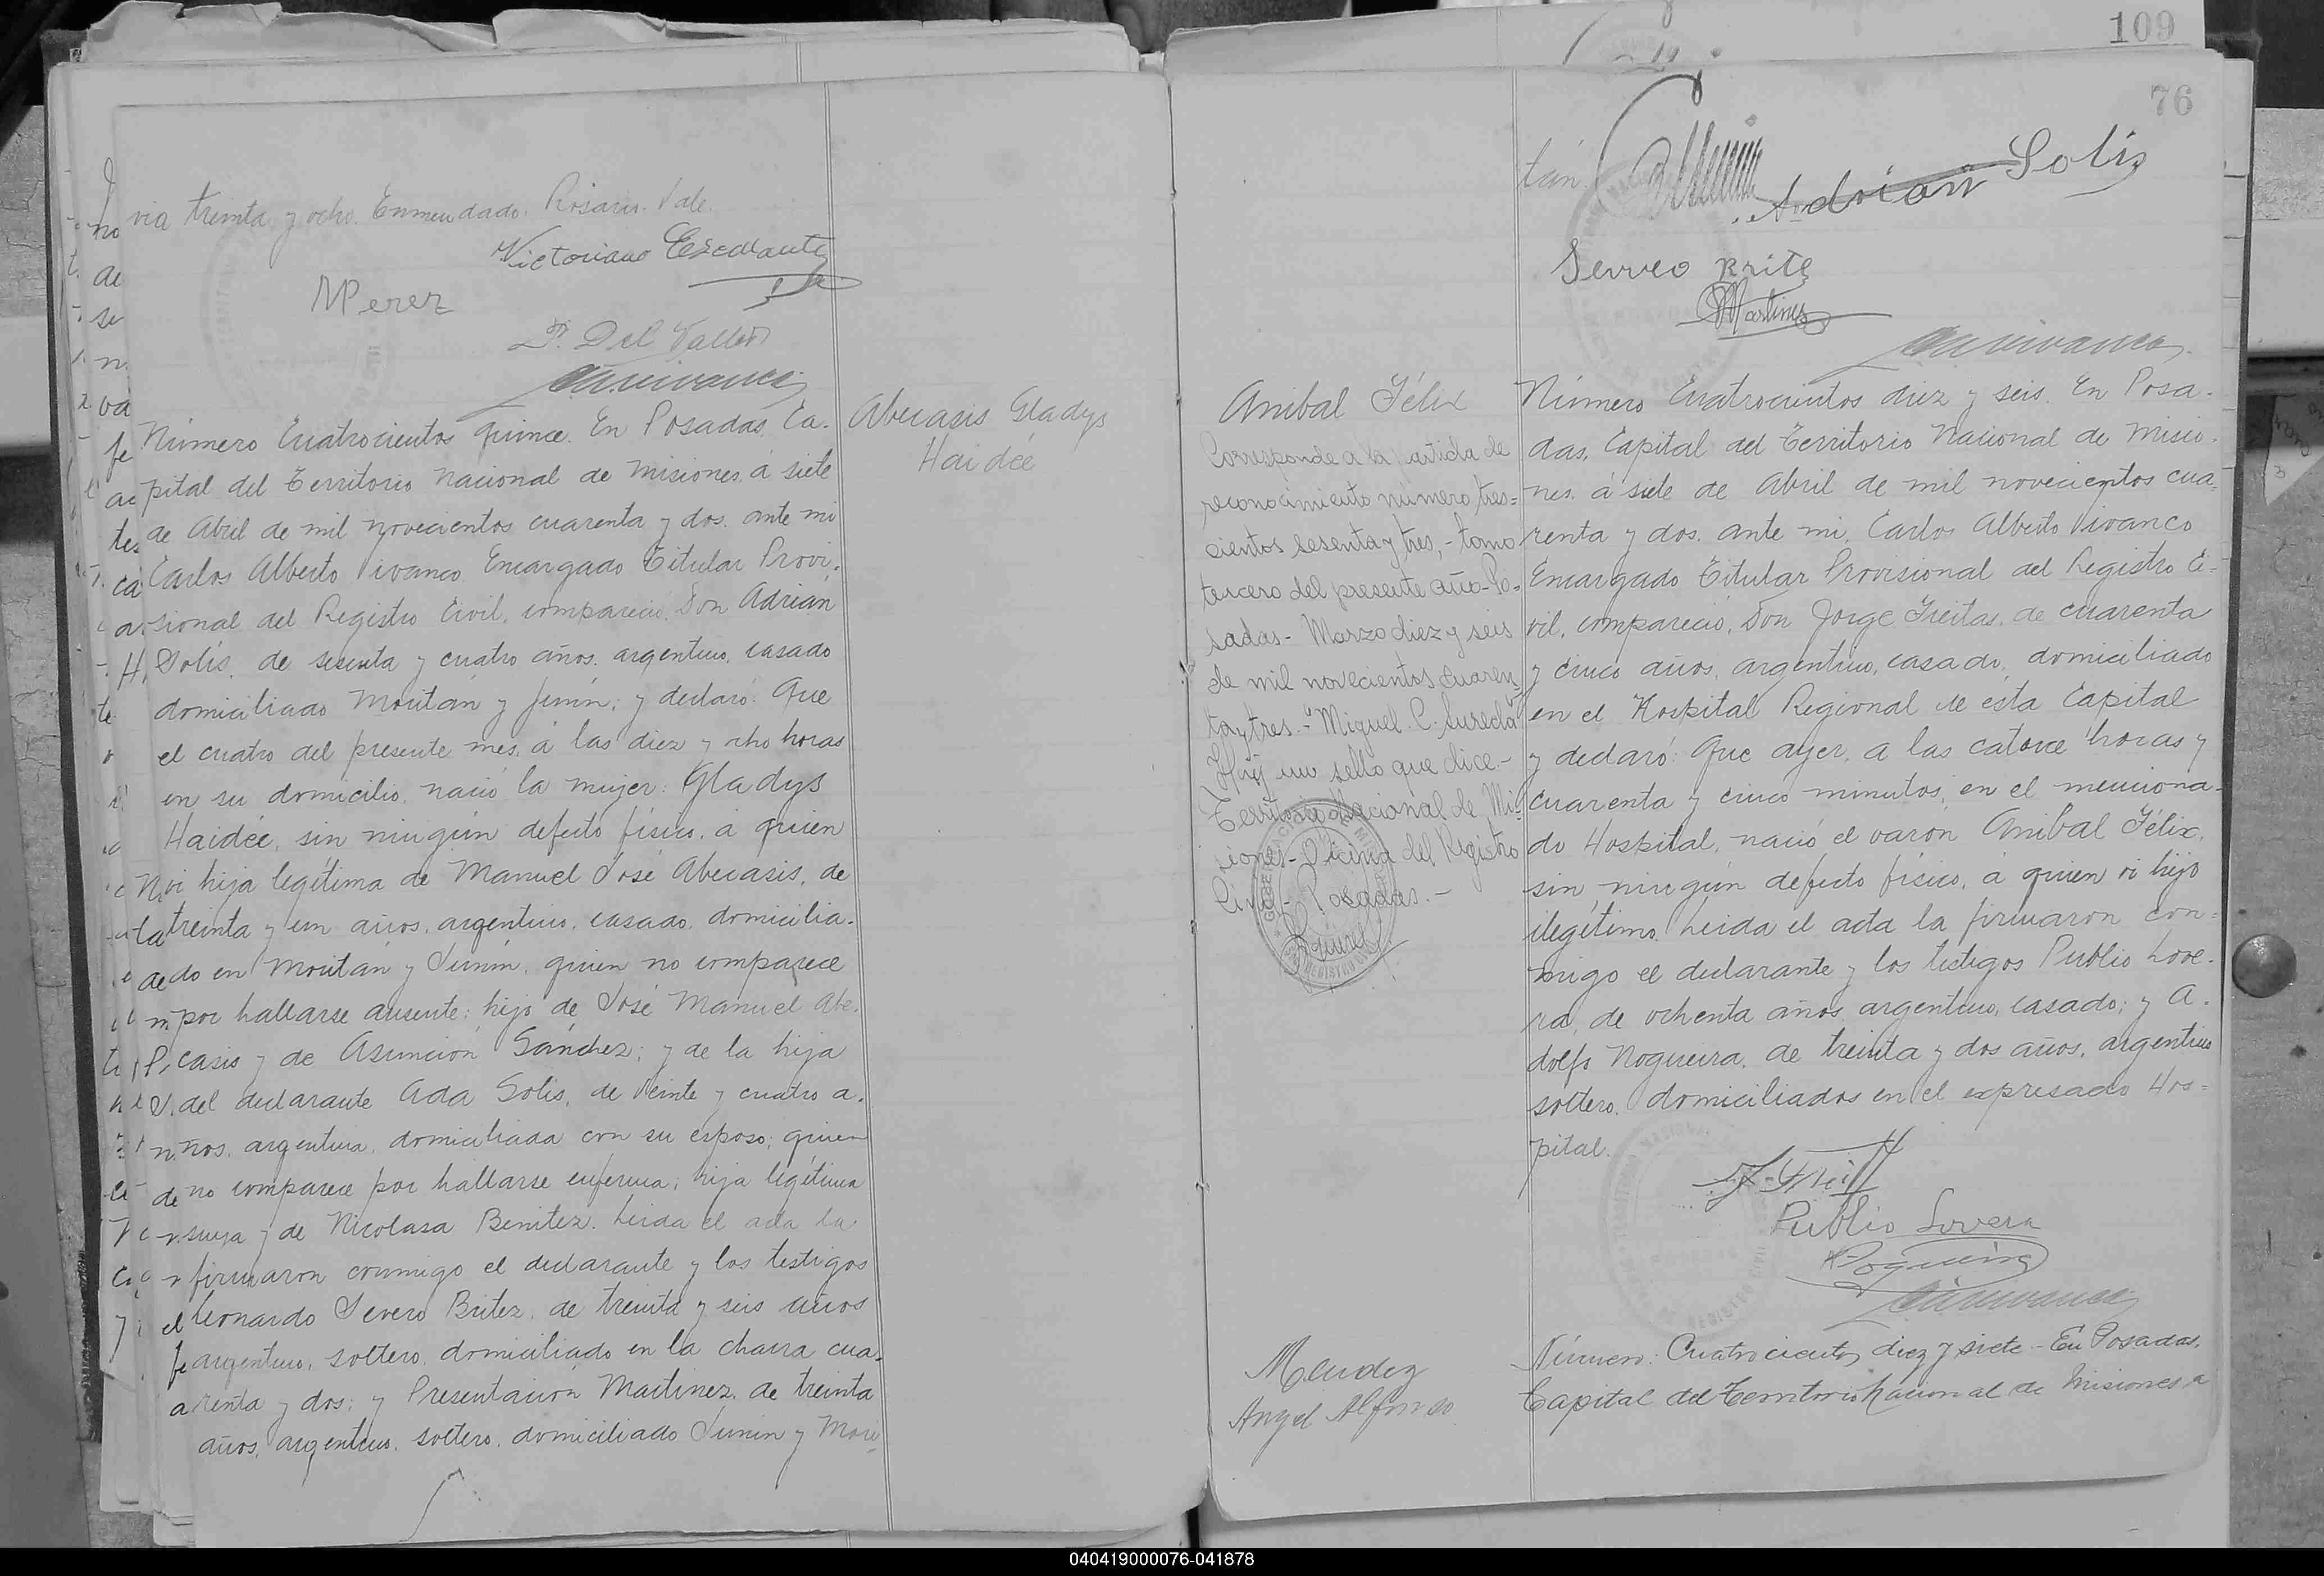 via treinta y ocho. Enmendado. Rosario. Vale.
Victoriano Escalante
M Perez
P. Del Valle
Número Cuatrocientos quince. En Posadas, Ca-
pital del Territorio Nacional de Misiones, á siete
de Abril de mil novecientos cuarenta y dos. ante mi
Carlos Alberto Vivanco Encargado Titular Provi-
sional del Registro Civil, compareció, Don Adrián
Solís, de sesenta y cuatro años, argentino, casado
domiciliado Moritán y Junín; y declaró: Que
el cuatro del presente mes, á las diez y ocho horas
en su domicilio, nació la mujer: Gladys
Haidée, sin ningún defecto físico, a quien
vi hija legítima de Manuel José Abecasis, de
treinta y un años, argentino, casado, domicilia-
do en Moritán y Junín, quien no comparece
por hallarse ausente; hijo de José Manuel Abe-
casis y de Asunción Sánchez; y de la hija
del declarante Ada Solís, de veinte y cuatro a-
ños, argentina, domiciliada con su esposo; quien
no comparece por hallarse enferma; hija legítima
suya y de Nicolasa Benitez. Leida el acta la
firmaron conmigo el declarante y los testigos
Leonardo Severo Britez, de treinta y seis años
argentino, soltero, domiciliado en la chacra cua-
renta y dos; y Presentación Martinez, de treinta
años, argentino, soltero, domiciliado Junín y Mori-
Abecasis Gladys
Haidée
109
76
tán.
Adrian Solis
Severo Brite
Martinez
Anibal Félix
Corresponde a la partida de
reconocimiento número tres=
cientos sesenta y tres,- tomo
tercero del presente año- Po-
sadas- Marzo diez y seis
de mil novecientos cuaren-
ta y tres.- Miguel C.
Hay un sello que dice.-
Territorio Nacional de Mi-
siones- Oficina del Registro
Civil- Posadas.-
Número Cuatrocientos diez y seis. En Posa-
das, Capital del Territorio Nacional de Misio-
nes, á siete de Abril de mil novecientos cua-
renta y dos. ante mi, Carlos Alberto Vivanco
Encargado Titular Provisional del Registro Ci-
vil, compareció, Don Jorge Freitas, de cuarenta
y cinco años, argentino, casado, domiciliado
en el Hospital Regional de esta Capital
y declaró: Que ayer, a las catorce horas y
cuarenta y cinco minutos, en el menciona-
do Hospital, nació el varón Anibal Félix,
sin ningún defecto físico, a quien vi hijo
ilegítimo. Leida el acta la firmaron con-
migo el declarante y los testigos Publio Love-
ra, de ochenta años, argentino, casado; y A-
dolfo Nogueira, de treinta y dos años, argentino
soltero, domiciliados en el expresado Hos-
pital.
Publio Lovera
Mendez
Angel Alfonso
Número: Cuatrocientos diez y siete - En Posadas,
Capital del Territorio Nacional de Misiones a
040419000076-041878